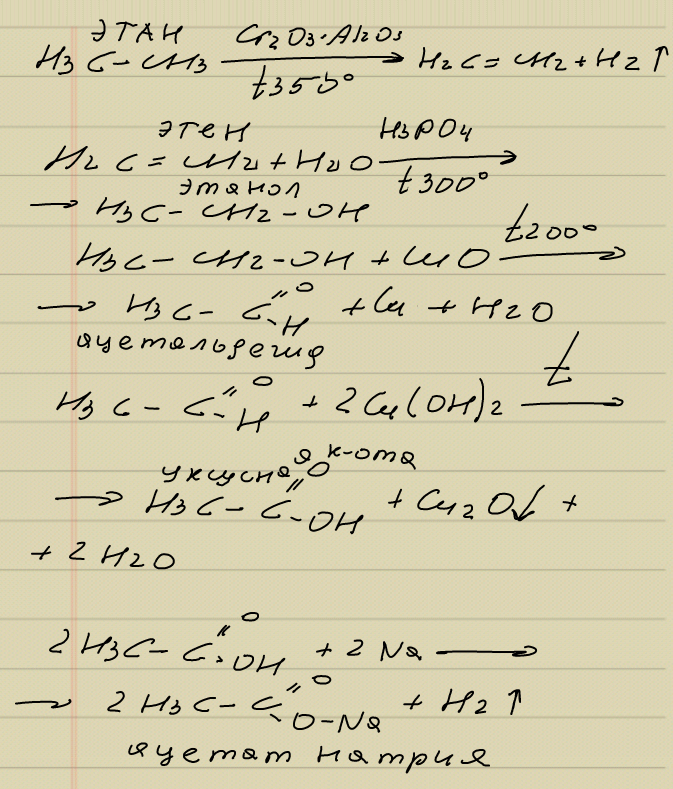 ЭТАН Cr2O3·Al2O3
H3C-CH3 → H2C=CH2+H2↑
t350°
этен H3PO4
H2C=CH2+H2O →
этанол t300°
→ H3C-CH2-OH
H3C-CH2-OH + CuO t200° →
→ H3C-C(=O)-H + Cu + H2O
ацетальдегид
H3C-C(=O)-H + 2Cu(OH)2 t →
уксусная к-ота
→ H3C-C(=O)-OH + Cu2O↓ +
+ 2H2O
2H3C-C(=O)-OH + 2Na →
→ 2H3C-C(=O)-O-Na + H2↑
ацетат натрия